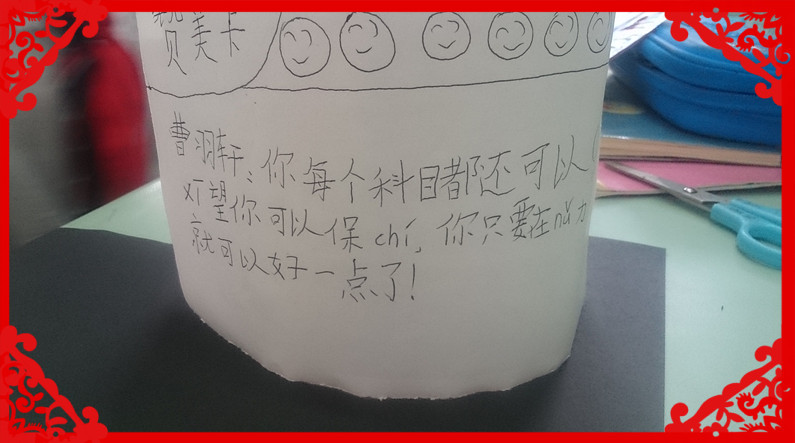 赞美卡
曹羽轩:你每个科目都还可以
希望你可以保chí,你只要在nǔ力
就可以好一点了!